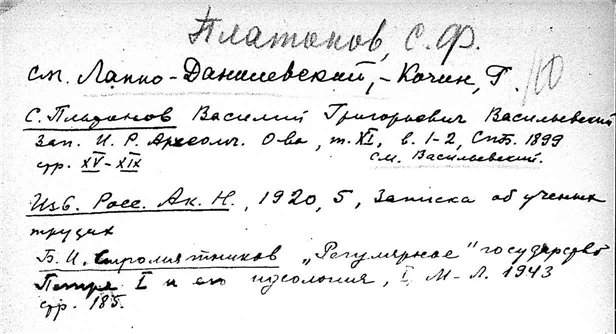 Платонов, С. Ф.
см. Лаппо-Данилевский, - Кочин, Г.
100
С. Платонов Василий Григорьевич Васильевский
Зап. И. Р. Археолог. О-ва, т. XI, в. 1-2, Спб. 1899
стр. XV-XIX см. Васильевский.
Изв. Росс. Ак. Н., 1920, 5, Записка об ученых
трудах
Б. И. Сыромятников „Регулярное" государство
Петра I и его идеология, I, М-Л. 1943
стр. 185.